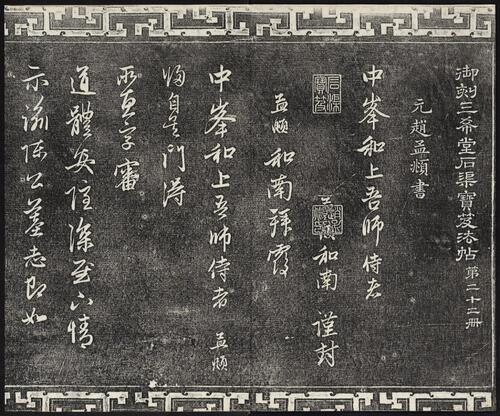 御刻三希堂石渠寶笈法帖 第二十二册
元趙孟頫書
中峯和上吾師侍者
孟頫和南 謹封
石渠寶笈
孟頫 和南拜覆
中峯和上吾師侍者 孟頫
得
所惠字審
道體安隱深慰下情
示諭陳公墓志即如